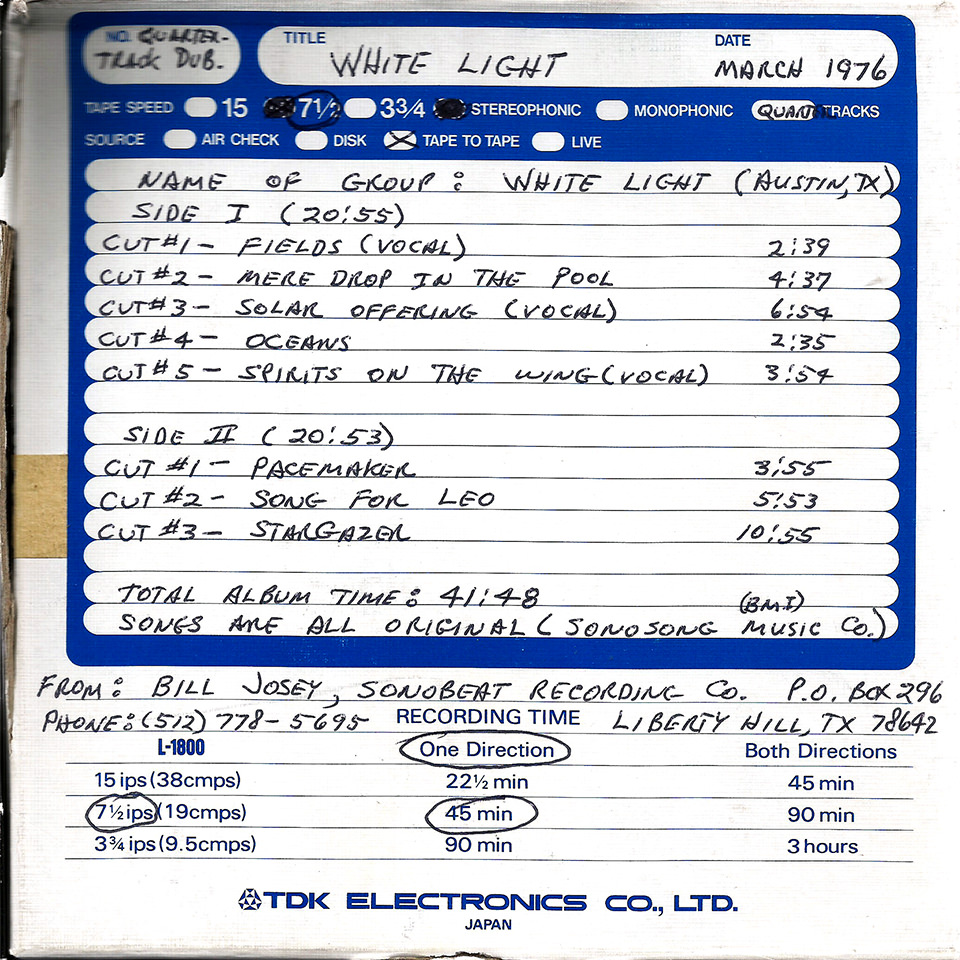 NO. QUARTER-TRACK DUB. TITLE WHITE LIGHT DATE MARCH 1976
TAPE SPEED 15 7½ 3¾ STEREOPHONIC MONOPHONIC TRACKS
SOURCE AIR CHECK DISK TAPE TO TAPE LIVE
NAME OF GROUP: WHITE LIGHT (AUSTIN, TX)
SIDE I (20:55)
CUT #1 - FIELDS (VOCAL) 2:39
CUT #2 - MERE DROP IN THE POOL 4:37
CUT #3 - SOLAR OFFERING (VOCAL) 6:54
CUT #4 - OCEANS 2:35
CUT #5 - SPIRITS ON THE WING (VOCAL) 3:54
SIDE II (20:53)
CUT #1 - PACEMAKER 3:55
CUT #2 - SONG FOR LEO 5:53
CUT #3 - STARGAZER 10:55
TOTAL ALBUM TIME: 41:48 (BMI)
SONGS ARE ALL ORIGINAL (SONOSONG MUSIC CO.)
FROM: BILL JOSEY, SONOBEAT RECORDING CO. P.O. BOX 296
PHONE: (512) 778-5695 RECORDING TIME LIBERTY HILL, TX 78642
L-1800 One Direction Both Directions
15 ips (38cmps) 22½ min 45 min
7½ ips (19cmps) 45 min 90 min
3¾ ips (9.5cmps) 90 min 3 hours
TDK ELECTRONICS CO., LTD.
JAPAN